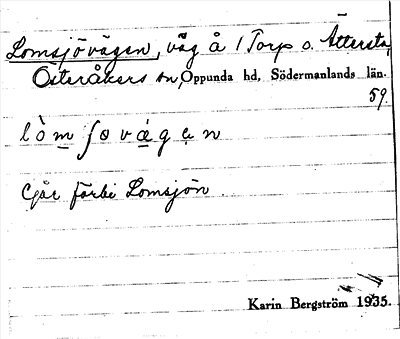 Lomsjövägen, väg å 1 Torp o. Ättersta,
Österåkers sn, Oppunda hd, Södermanlands län.
59.
lo᷄m ʃøvägen
Går förbi Lomsjön.
Karin Bergström 1935.